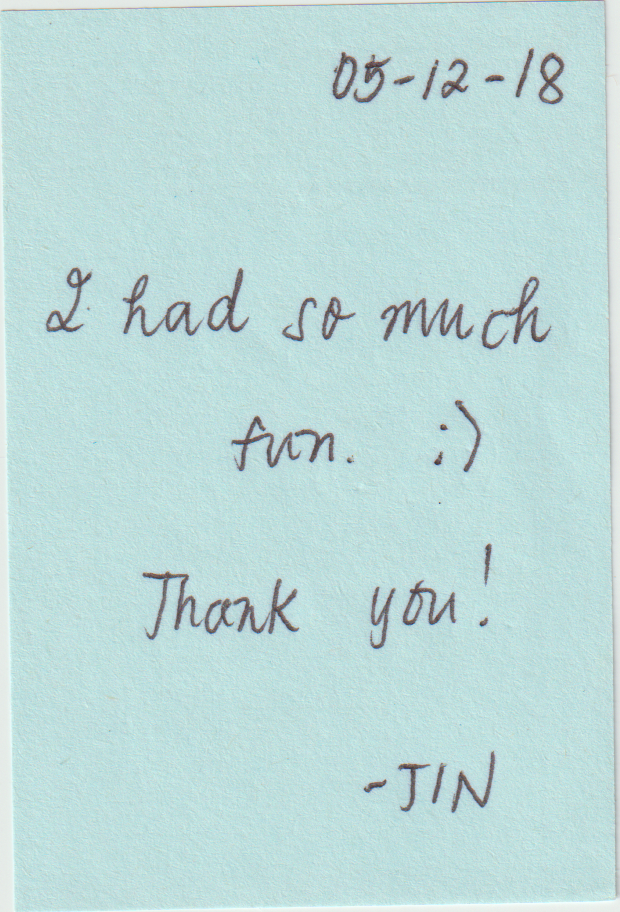 05-12-18
I had so much
fun. ;)
Thank you!
-JIN